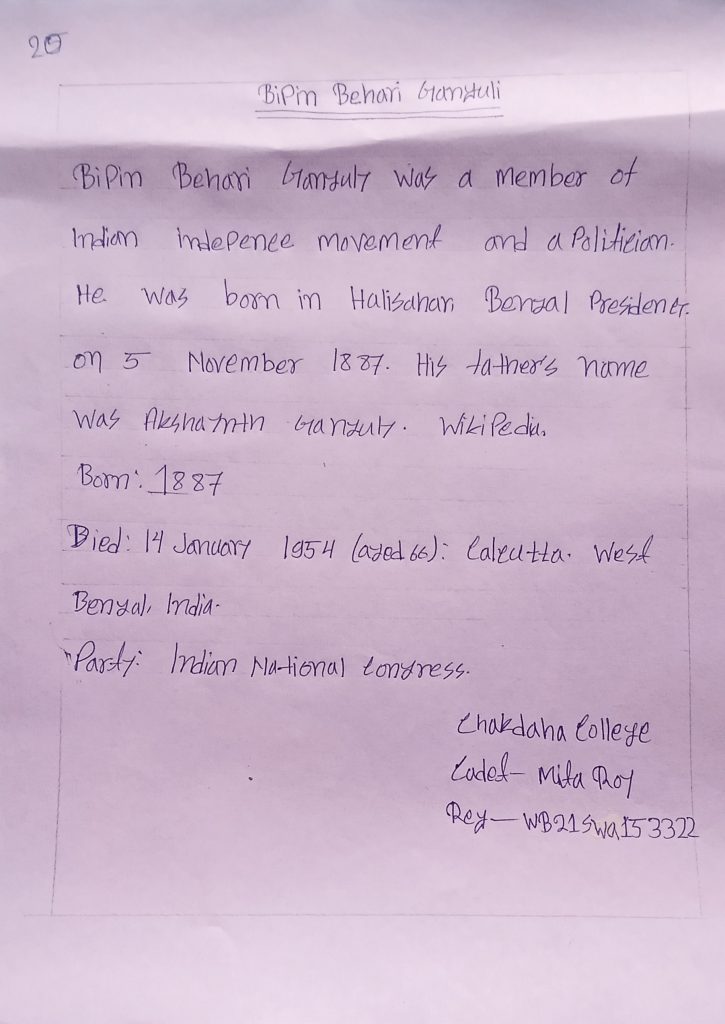 20
Bipin Behari Ganguli
Bipin Behari Ganguly was a member of
Indian indepence movement and a Politician.
He was born in Halisahar, Bengal Presidency.
on 5 November 1887. His father's name
was Akshaynth Ganguly. Wikipedia.
Born: 1887
Died: 14 January 1954 (aged 66): Calcutta. West
Bengal, India.
"Party: Indian National Congress.
Chakdaha College
Cadet- Mita Roy
Reg- WB21SWA153322